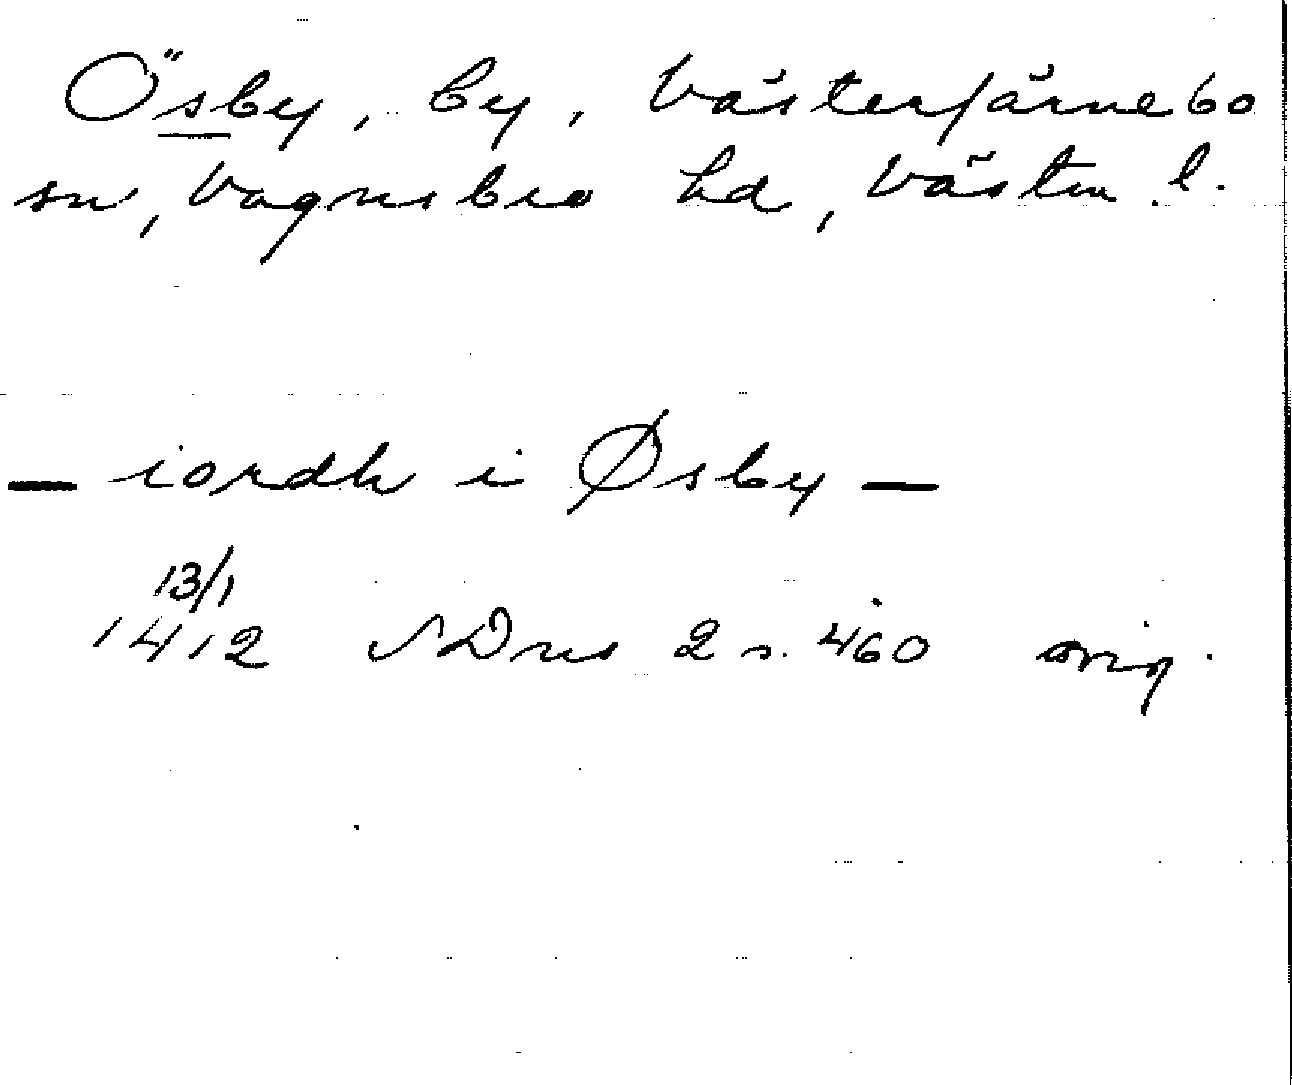 Ösby, by, Västerfärnebo
sn, Vagnsbro hd, Västm. l.
— iordh i Øsby —
13/1
1412 SDns 2 s. 460 orig.